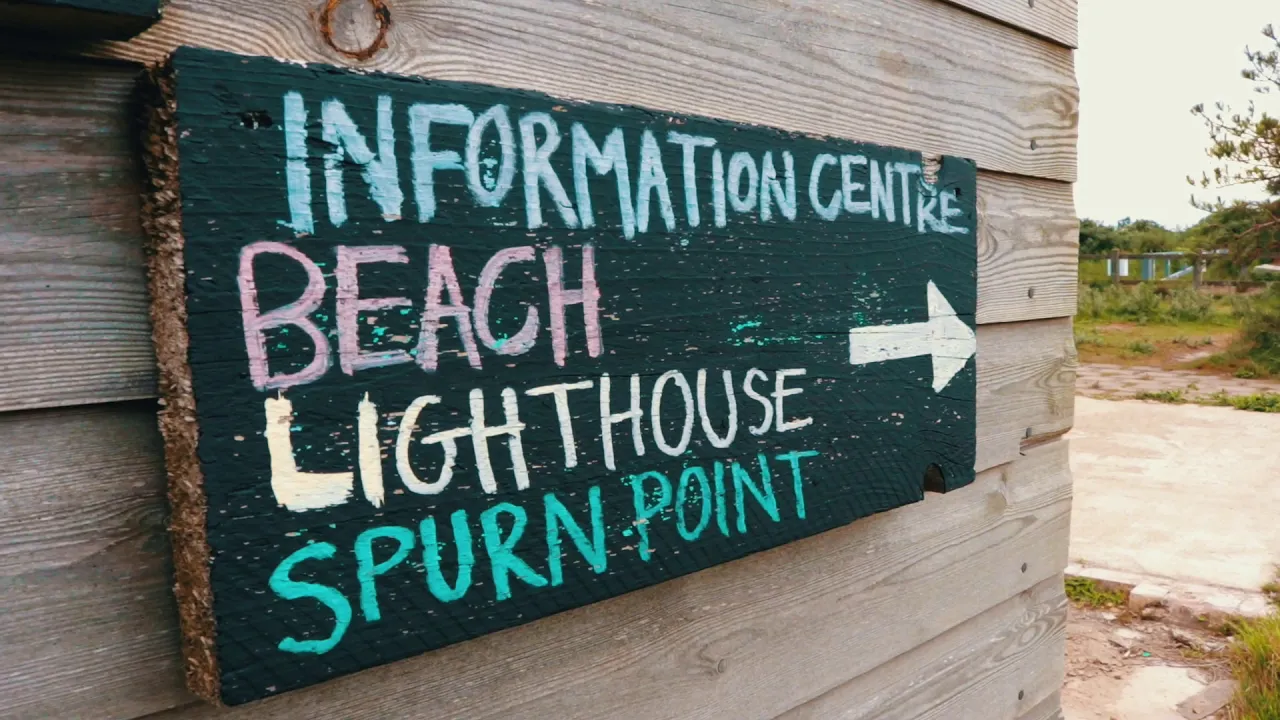 INFORMATION CENTRE
BEACH
LIGHTHOUSE
SPURN POINT